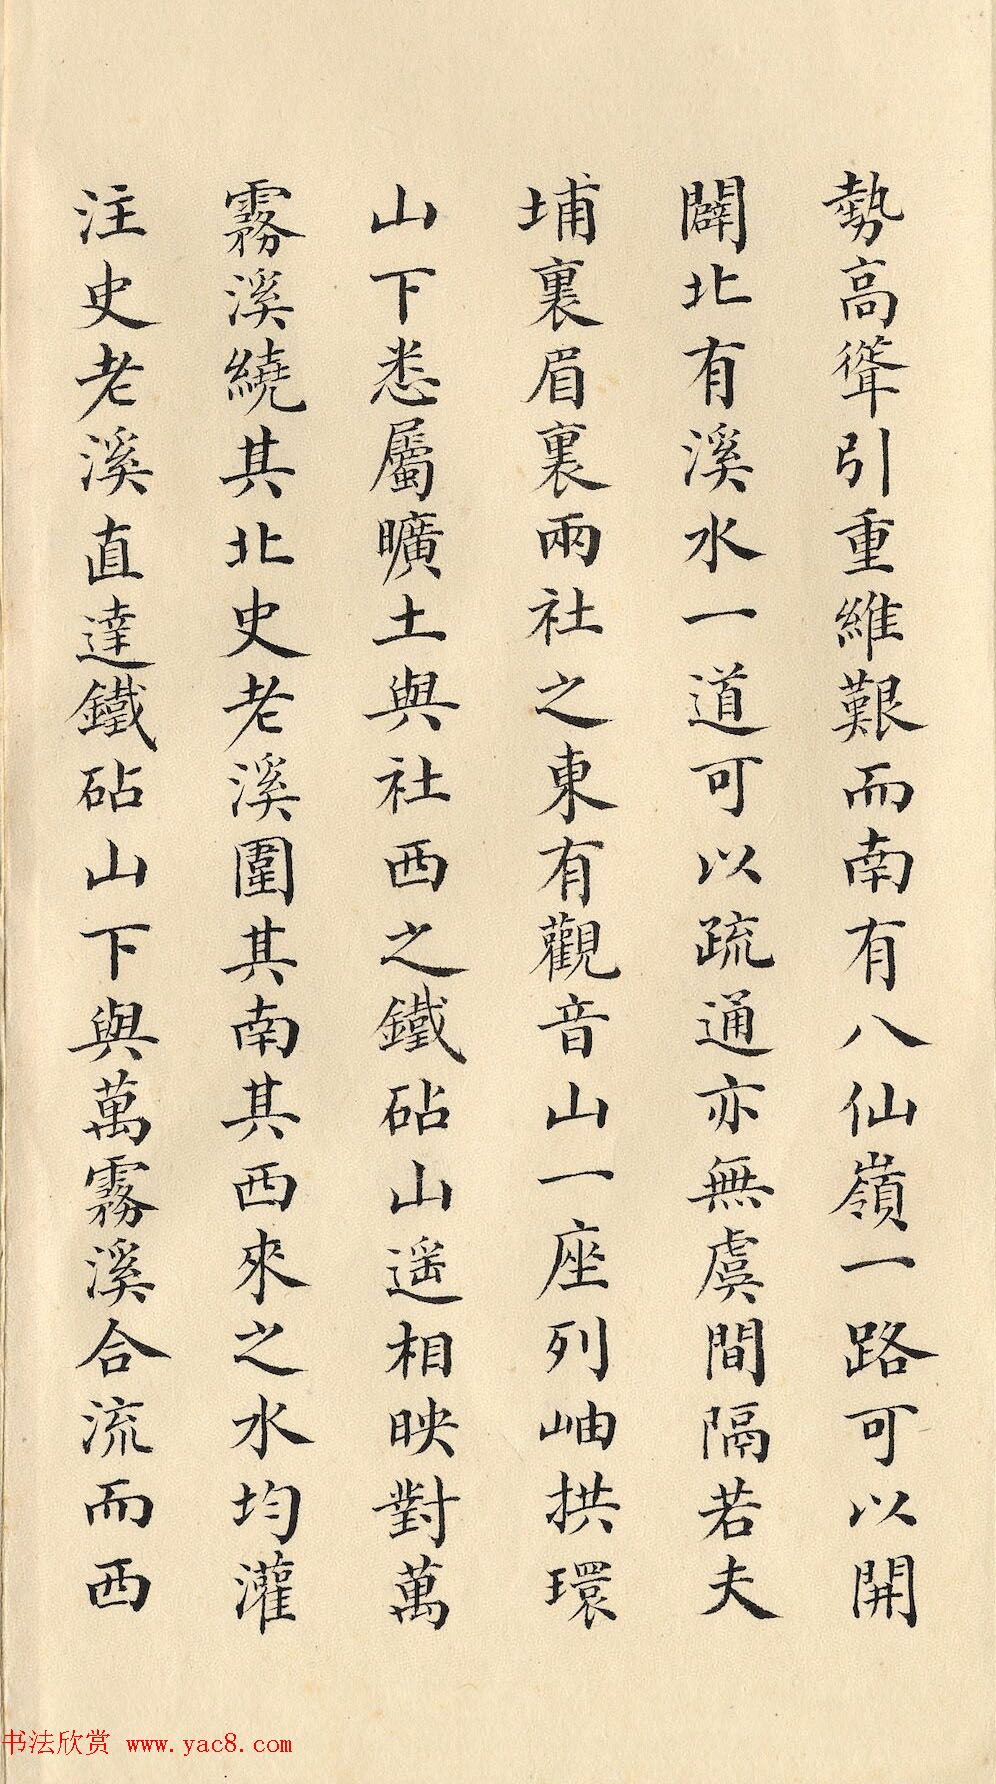 勢高聳引重維艱而南有八仙嶺一路可以開
闢北有溪水一道可以疏通亦無虞間隔若夫
埔裏眉裏兩社之東有觀音山一座列岫拱環
山下悉屬曠土與社西之鐵砧山遥相映對萬
霧溪繞其北史老溪圍其南其西來之水均灌
注史老溪直達鐵砧山下與萬霧溪合流而西
书法欣赏 www.yac8.com